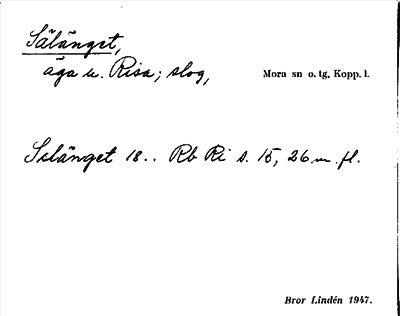 Sälänget,
äga u. Risa; slog, Mora sn o. tg, Kopp. l.
Selänget 18.. Rb Ri s. 15, 26 m. fl.
Bror Lindén 1947.